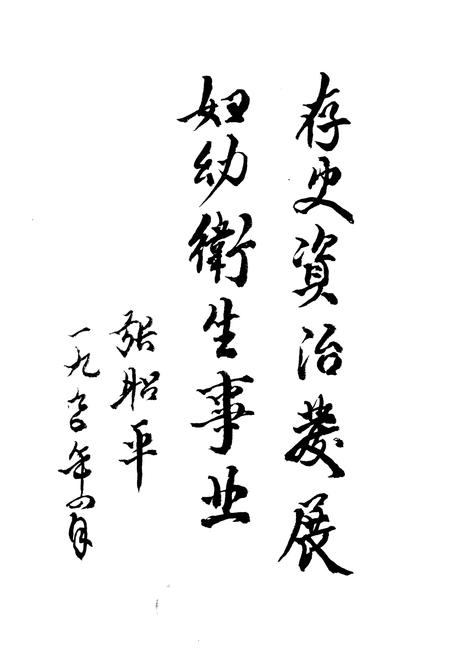 存史資治發展
妇幼衛生事业
張昭平
一九九〇年四月